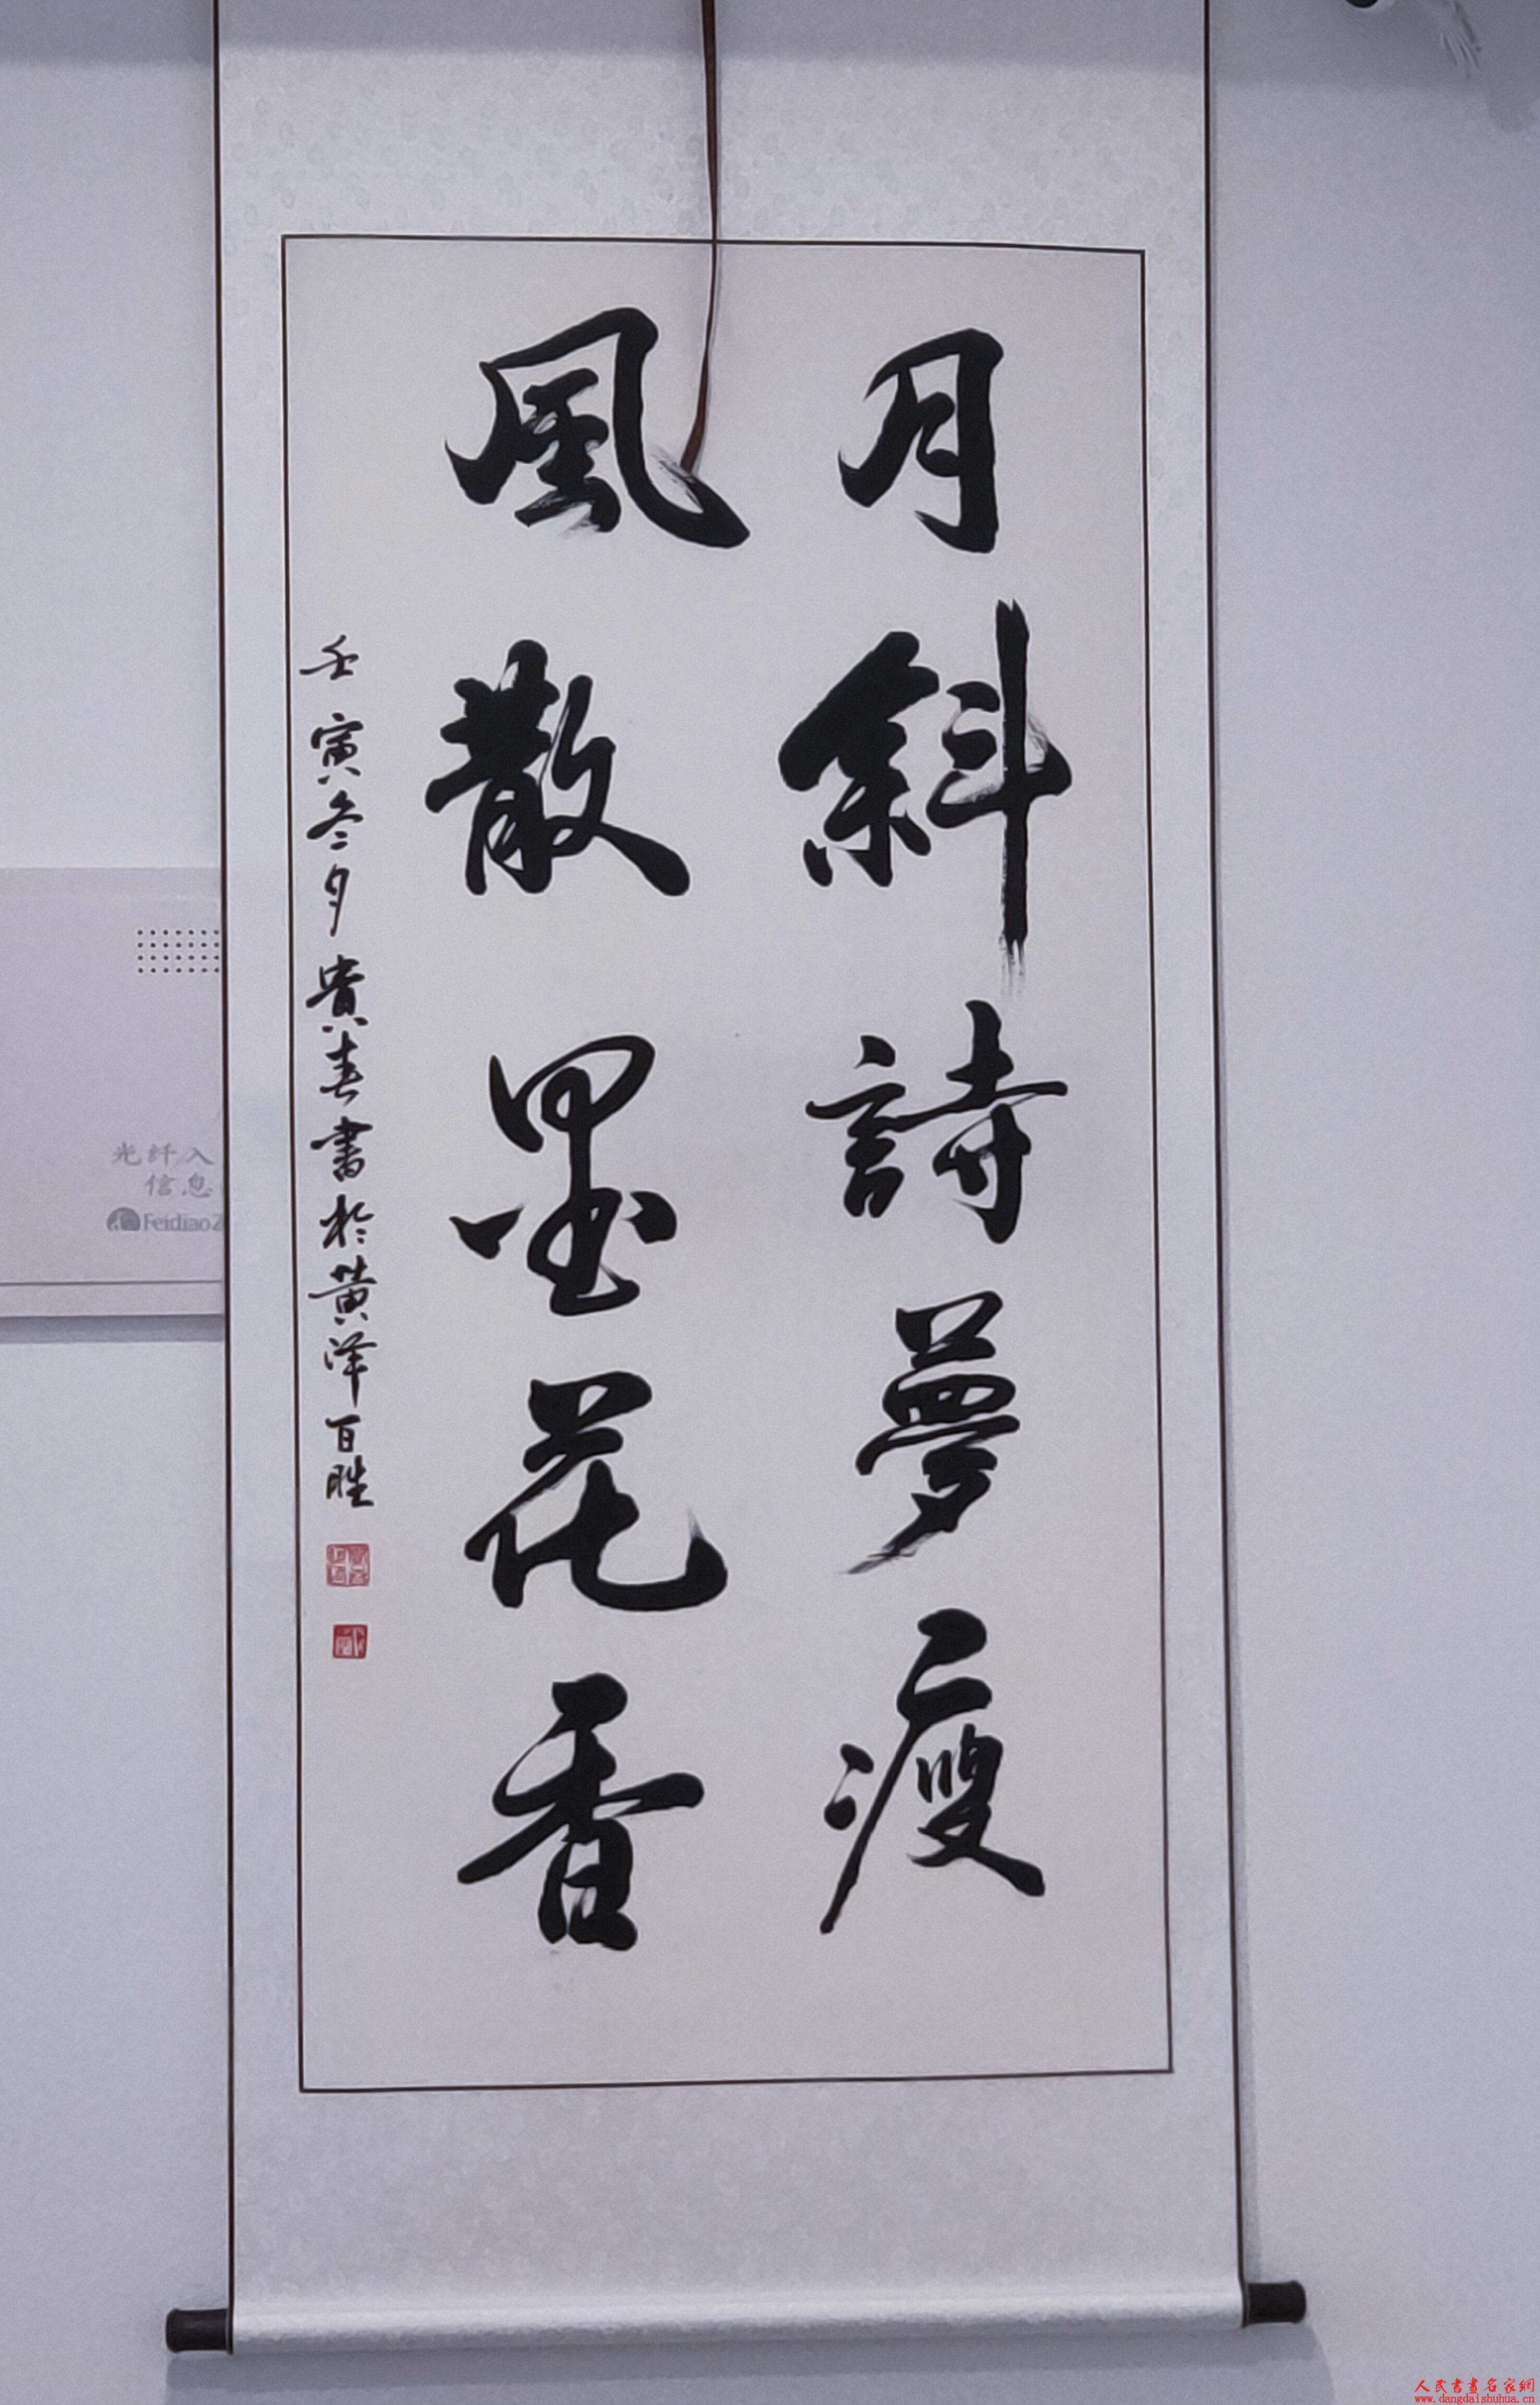 月斜詩夢瘦
風散墨花香
壬寅冬夕貴春書於黄澤百胜
光纤入
信息
Feidiao
人民書畫名家網
www.dangdaishuhua.cn